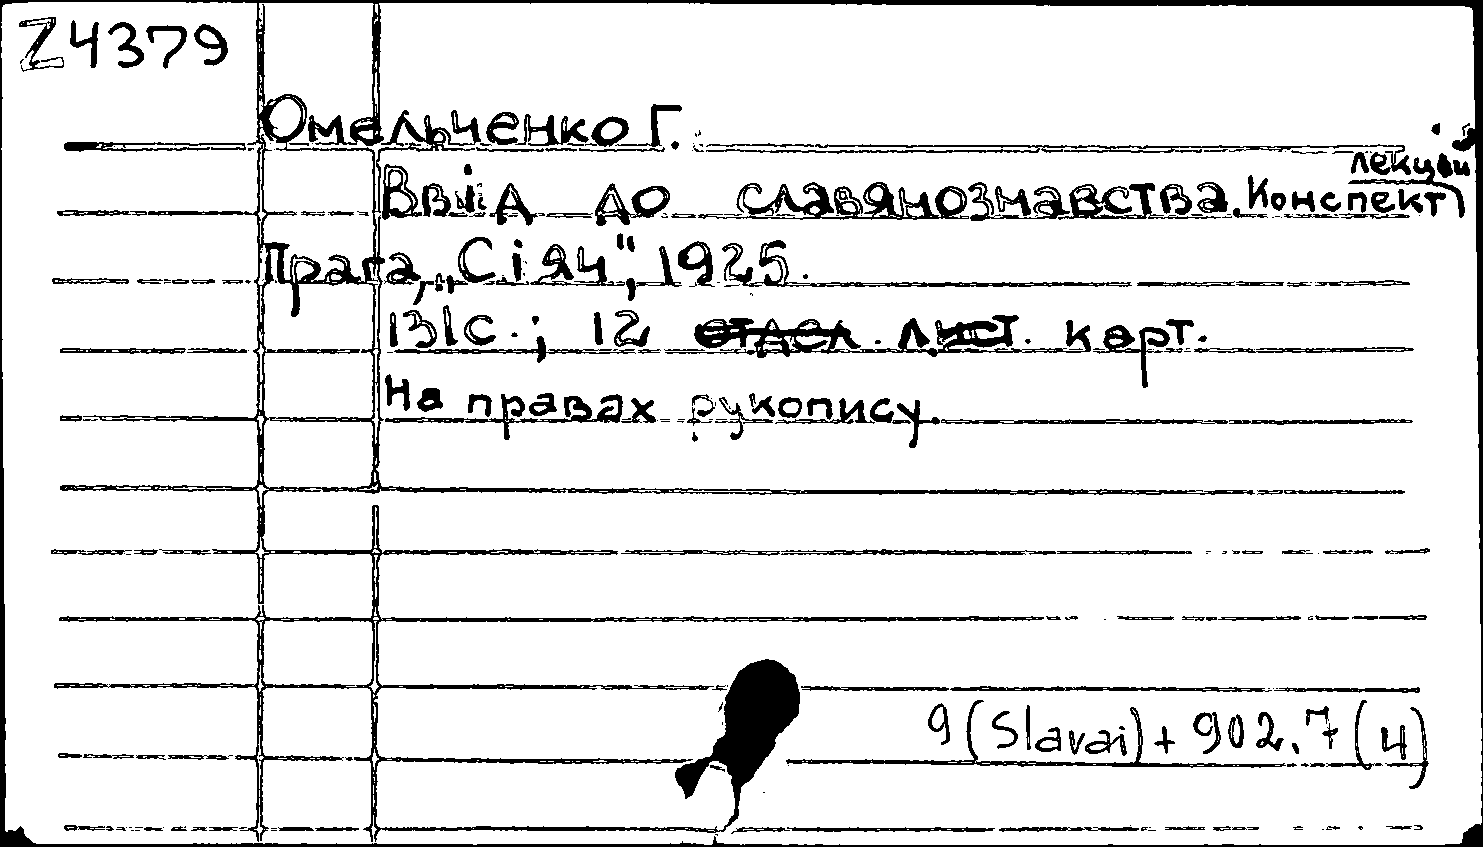 Z4379
Омельченко Г.
Ввід до славянознавства. Конспект
лекций
Прага, „Сіяч“, 1925.
131с.; 12 отдел. лист. карт.
На правах рукопису.
9(Slavai)+902.7(4)